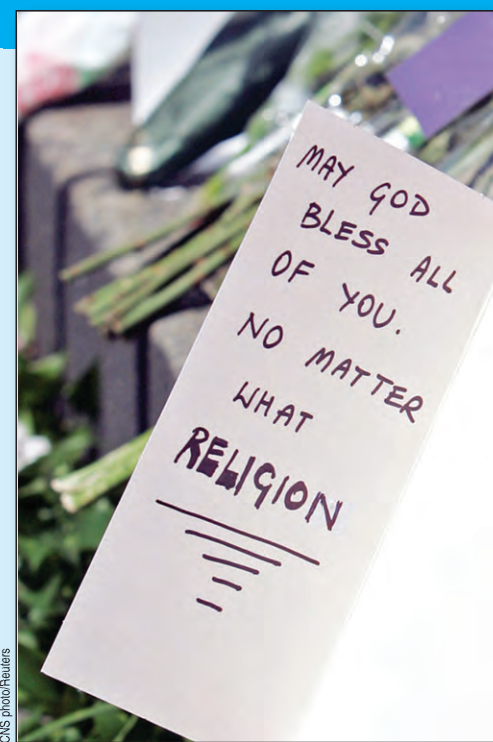 MAY GOD
BLESS ALL
OF YOU.
NO MATTER
WHAT
RELIGION
CNS photo/Reuters